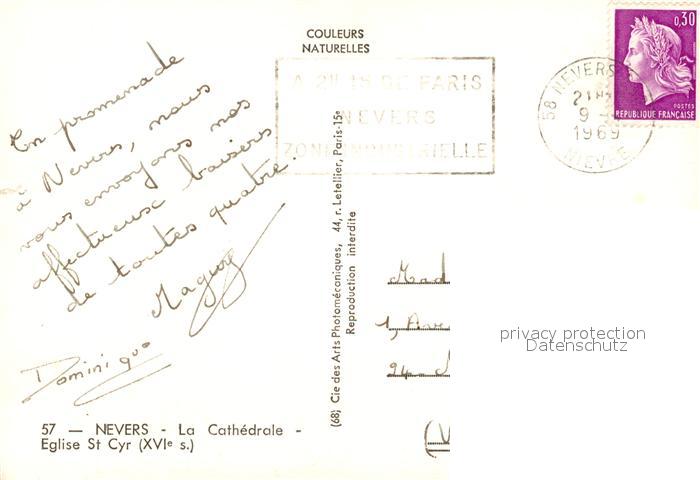 COULEURS
NATURELLES
A 2H 15 DE PARIS
NEVERS
ZONE INDUSTRIELLE
58 NEVERS
9 -
1969
NIEVRE
0,30
POSTES
REPUBLIQUE FRANÇAISE
En promenade
à Nevers, nous
vous envoyons nos
affectueux baisers
de toutes quatre
Dominique
57 — NEVERS - La Cathédrale -
Eglise St Cyr (XVIe s.)
(68) Cie des Arts Photomécaniques, 44, r. Letellier, Paris-15e
Reproduction interdite
Mad
1,
94
privacy protection
Datenschutz